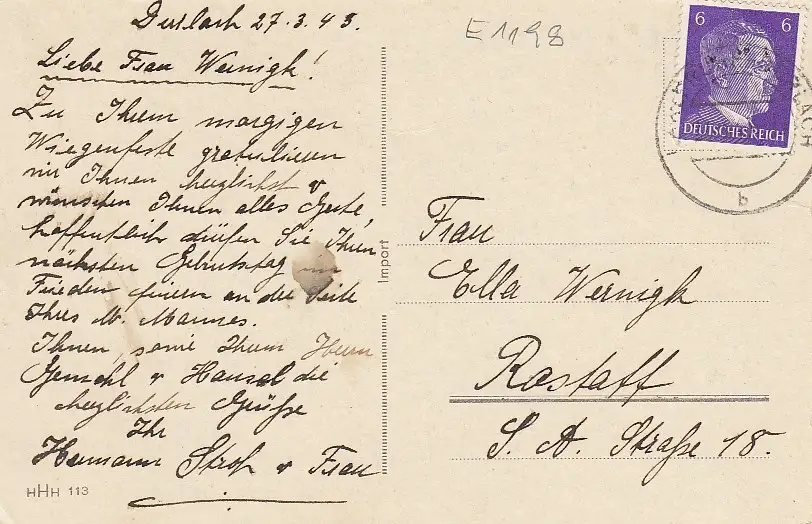 Durlach 27.3.43.
Liebe Frau Wernigk!
Zu Ihrem morgigen
Wiegenfeste gratulieren
wir Ihnen herzlichst u
wünschen Ihnen alles Gute,
hoffentlich dürfen Sie Ihren
nächsten Geburtstag im
Frieden feiern an der Seite
Ihres lb. Mannes.
Ihnen, sowie Ihrem Herrn
Gemahl u Hansel die
herzlichsten Grüße
Ihr
Hermann Stroh u Frau
HHH 113
Import
E 1198
6 6
DEUTSCHES REICH
b
Frau
Ella Wernigk
Rastatt
S. A. Straße 18.